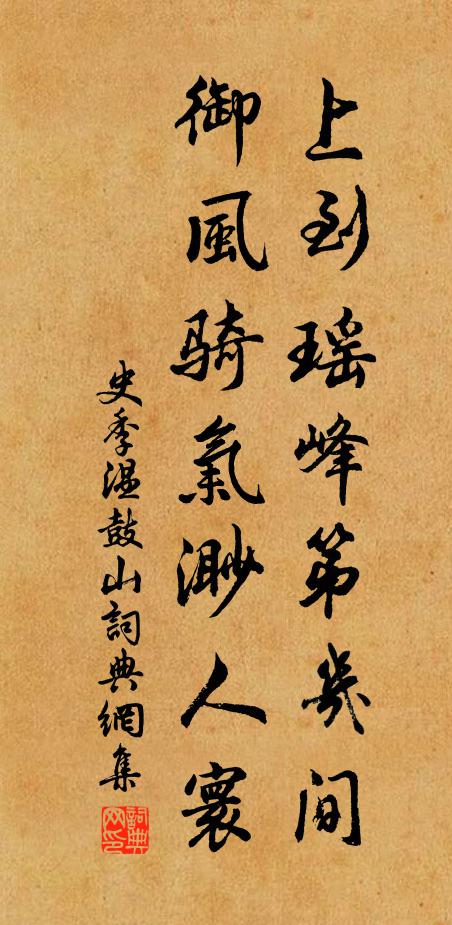 上到瑶峰第幾间
御風騎氣渺人寰
史季温鼓山詞典網集
詞典网印